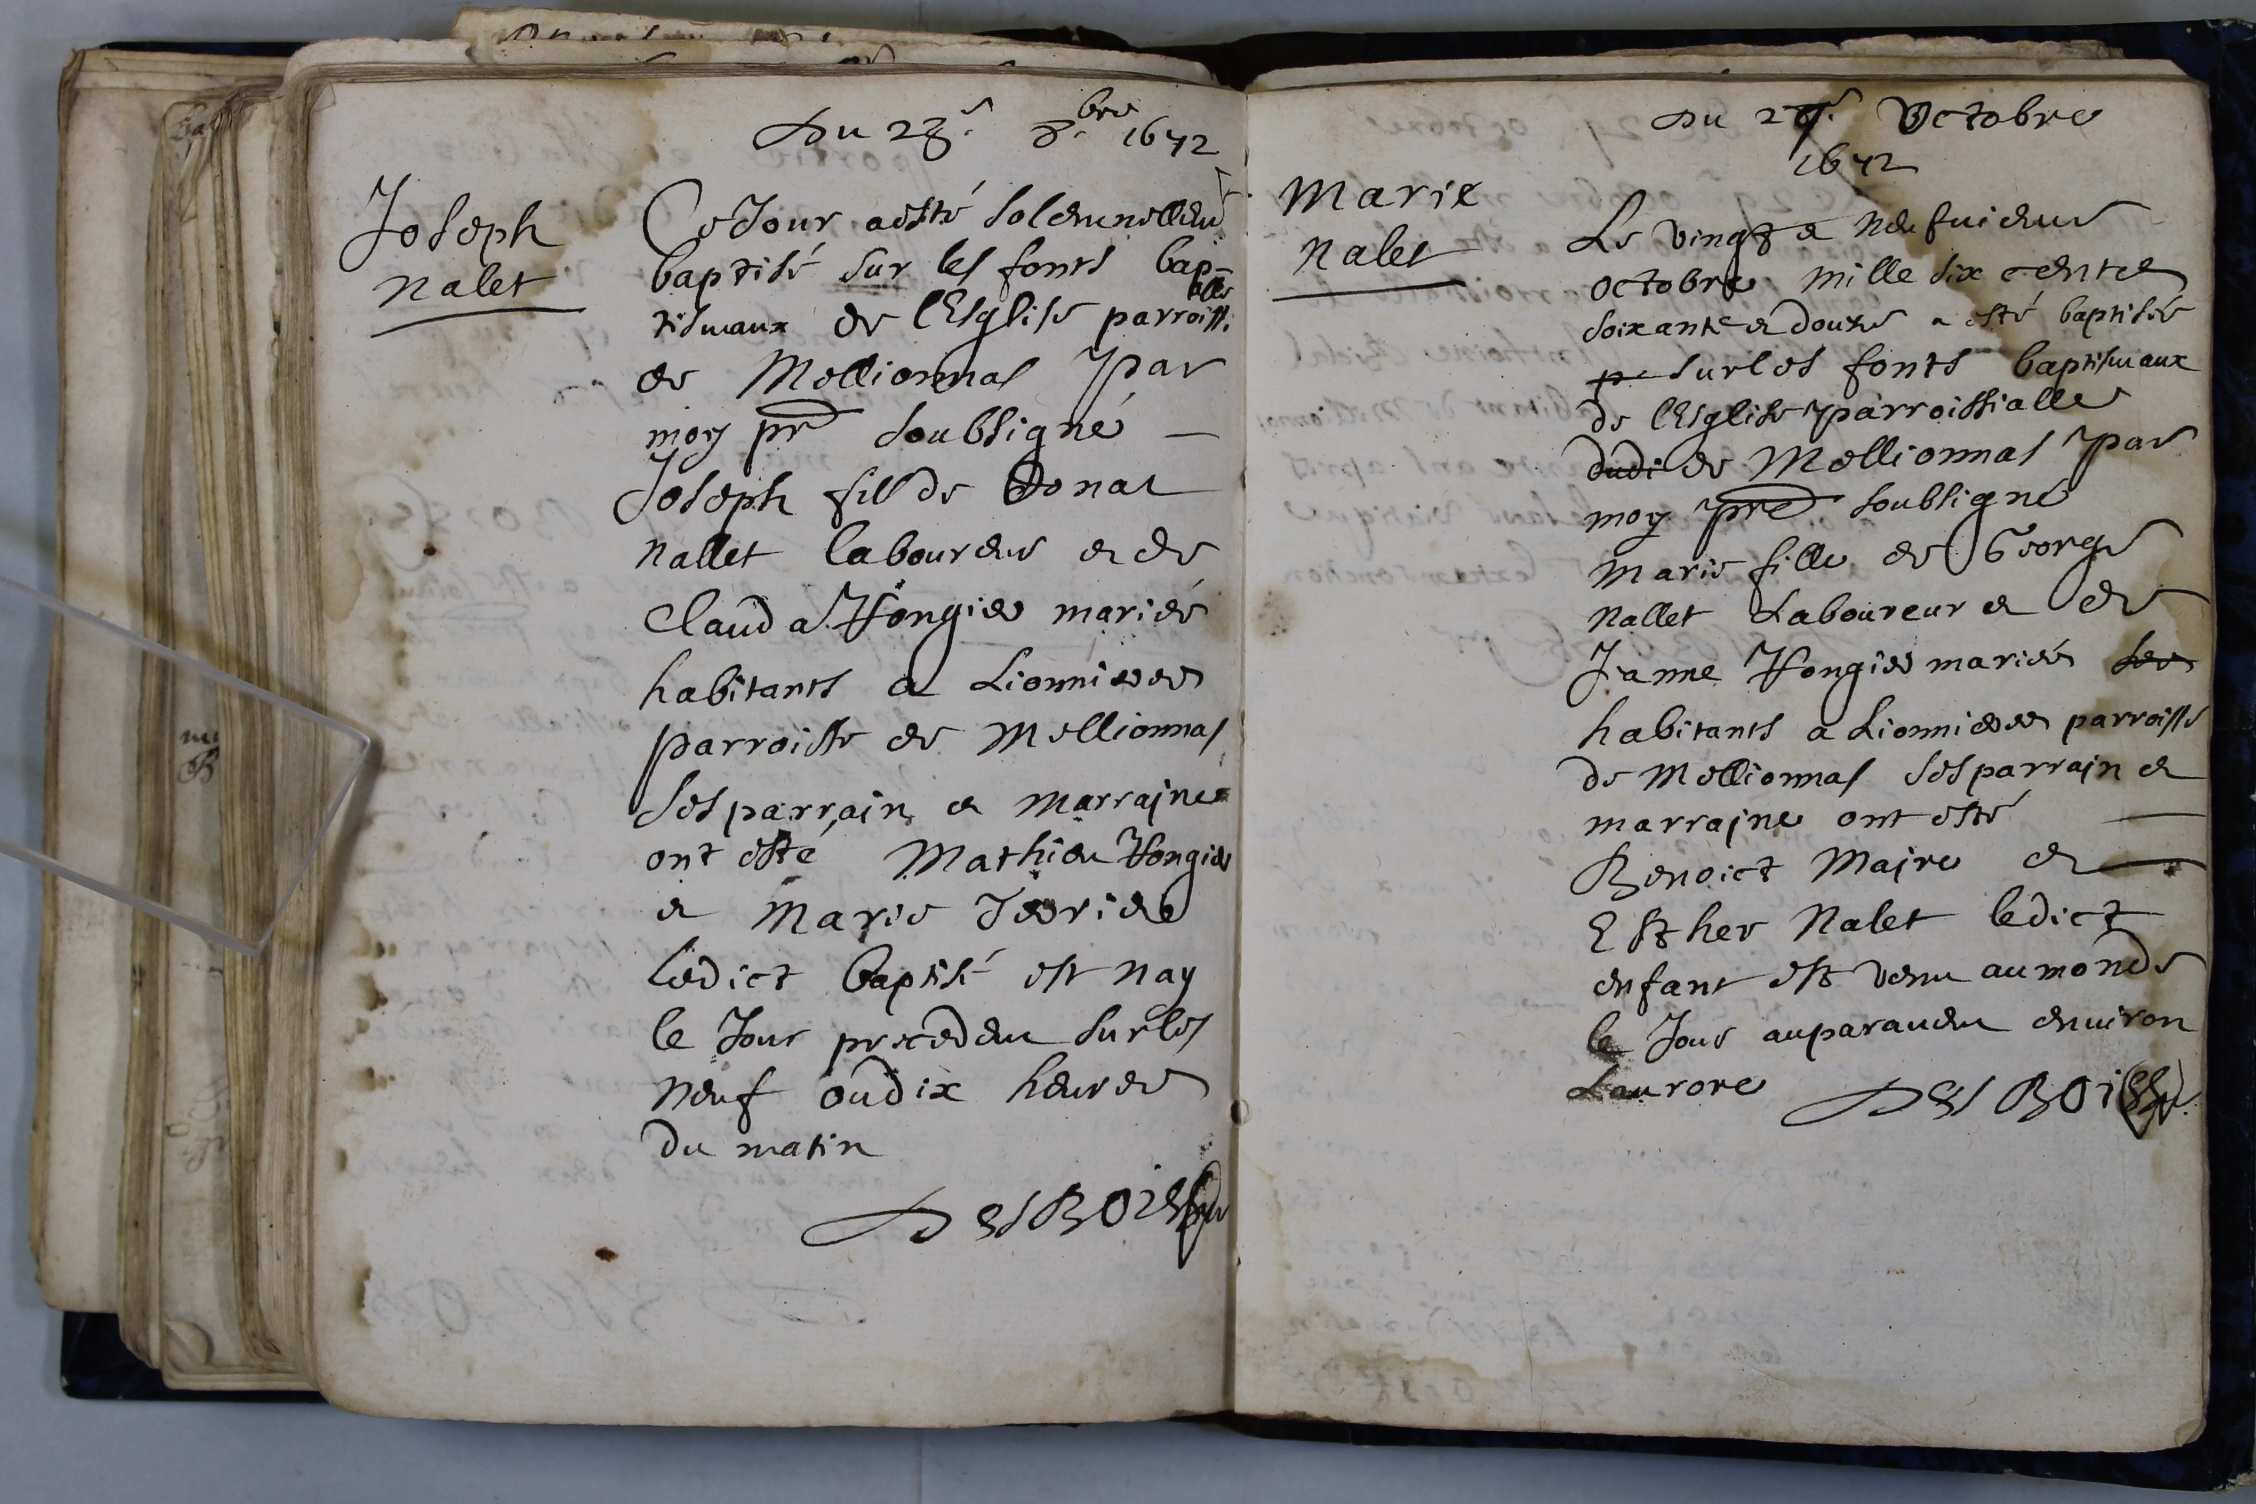 Du 28.e 8.bre 1672
Joseph
Nalet
Ce Jour a esté solemnellemt
baptisé sur les fonts bap-
tismaux de l'Esglise parroissialle
de Mollionnas par
moy pre soubsigné —
Joseph fils de Donat
Nallet laboureur et de
Clauda Hongier mariés
habitants a Lionnieres
parroisse de Mollionnas
Ses parrain et marrajne
ont esté Mathieu Hongier
et Marie
ledict baptisé est nay
le Jour precedent sur les
neuf ou dix heures
du matin
DesBois pre
Du 29.e Octobre
1672
Marie
Nalet
Le vingt et neufuieme
octobre mille six cents
soixante et douze a esté baptisée
sur les fonts baptismaux
de l'Esglise parroissialle
dudi de Mollionnas par
moy pre soubsigné
Marie fille de George
Nallet Laboureur et de
Jeanne Hongier mariés
habitants a Lionnieres parroisse
de Mollionnas Ses parrajn et
marrajne ont esté —
Benoict Majre et —
Esther Nalet ledict
enfant est venu au monde
le Jour auparauent enuiron
Laurore DesBois pre